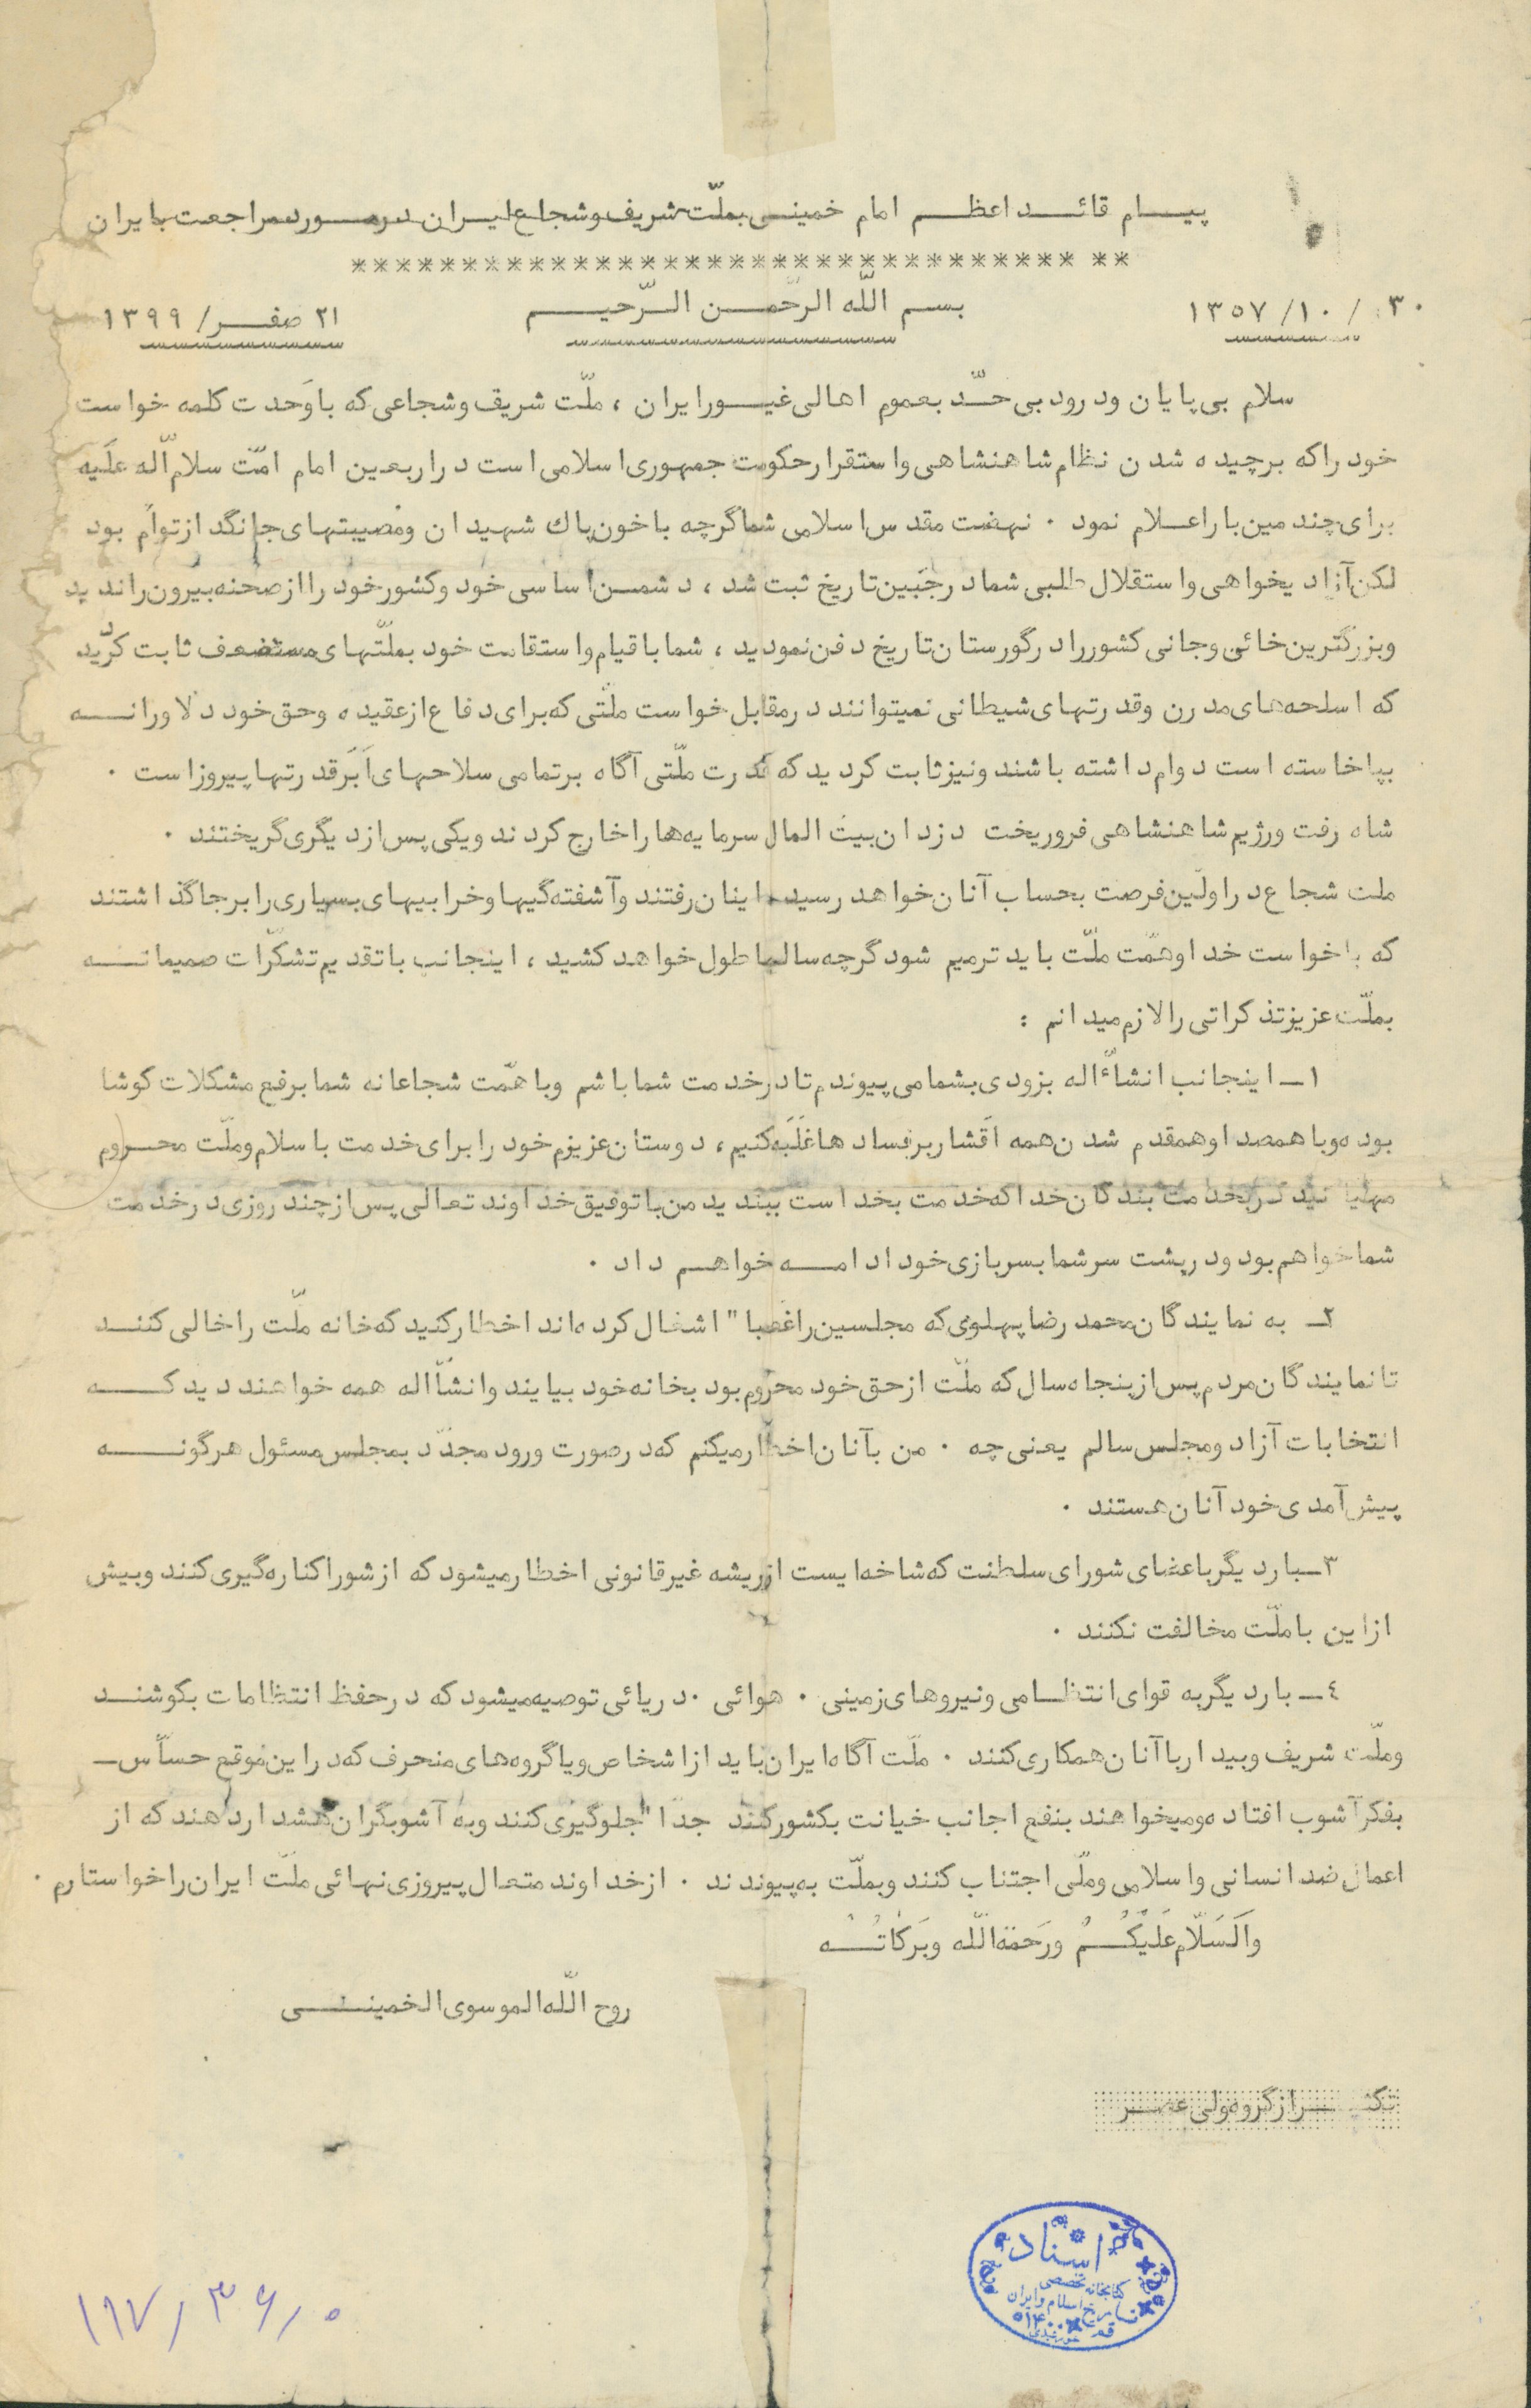 پیام قائد اعظم امام خمینی بملّت شریف و شجاع ایران در مورد مراجعت بایران
********************************** **
۳۰ / ۱۰/ ۱۳۵۷
بسم اللّه الرحّمن الرّحیم
۲۱ صفر/ ۱۳۹۹
سلام بی پایان ودرود بی حدّ بعموم اهالی غیور ایران ، ملّت شریف وشجاعی که باوَحدت کلمه خواست
خود راکه برچیده شدن نظام شاهنشاهی واستقرار حکومت جمهوری اسلامی است در اربعین امام امّت سلام اّله علَیه
برای چندمین بار اعلام نمود . نهضت مقدس اسلامی شما گرچه باخون پاك شهیدان ومُصیبتهای جانگداز توأم بود
لکن آزادیخواهی واستقلال طلبی شما در جَبین تاریخ ثبت شد ، دشمن اساسی خود وکشور خود را از صحنه بیرون راندید
وبزرگترین خائن وجانی کشور را در گورستان تاریخ دفن نمودید ، شما با قیام واستقامت خود بملّتهای مستضعف ثابت کردید
که اسلحه های مدرن وقدرتهای شیطانی نمیتوانند در مقابل خواست ملّتی که برای دفاع از عقیده وحق خود دلاورانه
بپاخاسته است دوام داشته باشند ونیز ثابت کردید که قدرت ملّتی آگاه برتمامی سلاحهای اَبَرقدرتها پیروز است .
شاه رفت ورژیم شاهنشاهی فروریخت دزدان بیتُ المال سرمایه ها را خارج کردند ویکی پس از دیگری گریختند .
ملت شجاع در اولّین فرصت بحساب آنان خواهد رسید اینان رفتند وآشفته گیها وخرابیهای بسیاری را برجا گذاشتند
که باخواست خدا وهمّت ملّت باید ترمیم شود گرچه سالها طول خواهد کشید ، اینجانب باتقدیم تشکّرات صمیمانه
بملّت عزیز تذکراتی را لازم میدانم :
۱ـ اینجانب انشأاله بزودی بشما می پیوندم تا در خدمت شما باشم وبا همّت شجاعانه شما برفع مشکلات کوشا
بوده وبا همصدا وهمقدم شدن همه اقشار برفساد ها غَلَبه کنیم ، دوستان عزیزم خود را برای خدمت باسلام وملّت محروم
مهیا نید در بخدمت بندگان خدا که خدمت بخداست ببندید من با توفیق خداوند تعالی پس از چند روزی در خدمت
شما خواهم بود ودر پشت سر شما بسربازی خود ادامه خواهم داد .
۲ـ به نمایندگان محمد رضا پهلوی که مجلسین را غصبا" اشغال کرده اند اخطار کنید که خانه ملّت را خالی کنند
تا نمایندگان مردم پس از پنجاه سال که ملّت از حق خود محروم بود بخانه خود بیایند وانشأاله همه خواهند دید که
انتخابات آزاد ومجلس سالم یعنی چه . من بآنان اخطار میکنم که در صورت ورود مجدّد بمجلس مسئول هرگونه
پیش آمدی خود آنان هستند .
۳ـ بار دیگر باعضای شورای سلطنت که شاخه ایست از ریشه غیرقانونی اخطار میشود که از شورا کناره گیری کنند وبیش
از این باملّت مخالفت نکنند .
٤ـ بار دیگر به قوای انتظامی ونیروهای زمینی . هوائی . دریائی توصیه میشود که در حفظ انتظامات بکوشند
وملّت شریف وبیدار با آنان همکاری کنند . ملّت آگاه ایران باید از اشخاص ویا گروه های منحرف که در این موقع حساّس ـ
بفکر آشوب افتاده ومیخواهند بنفع اجانب خیانت بکشور کنند جداً" جلوگیری کنند وبه آشوبگران هشدار دهند که از
اعمال ضد انسانی واسلامی وملّی اجتناب کنند وبملّت به پیوندند . از خداوند متعال پیروزی نهائی ملّت ایران را خواستارم .
واَلَسَلّام عَلَیکُمْ ورَحمَةاللّه وبَرَکاتُه
روح اللّه الموسوی الخمینی
تکثیر از گروه ولی عصر
اسناد
کتابخانه تخصصی
تاریخ اسلام و ایران
قم
۱۱۷/ ۳۶/۰